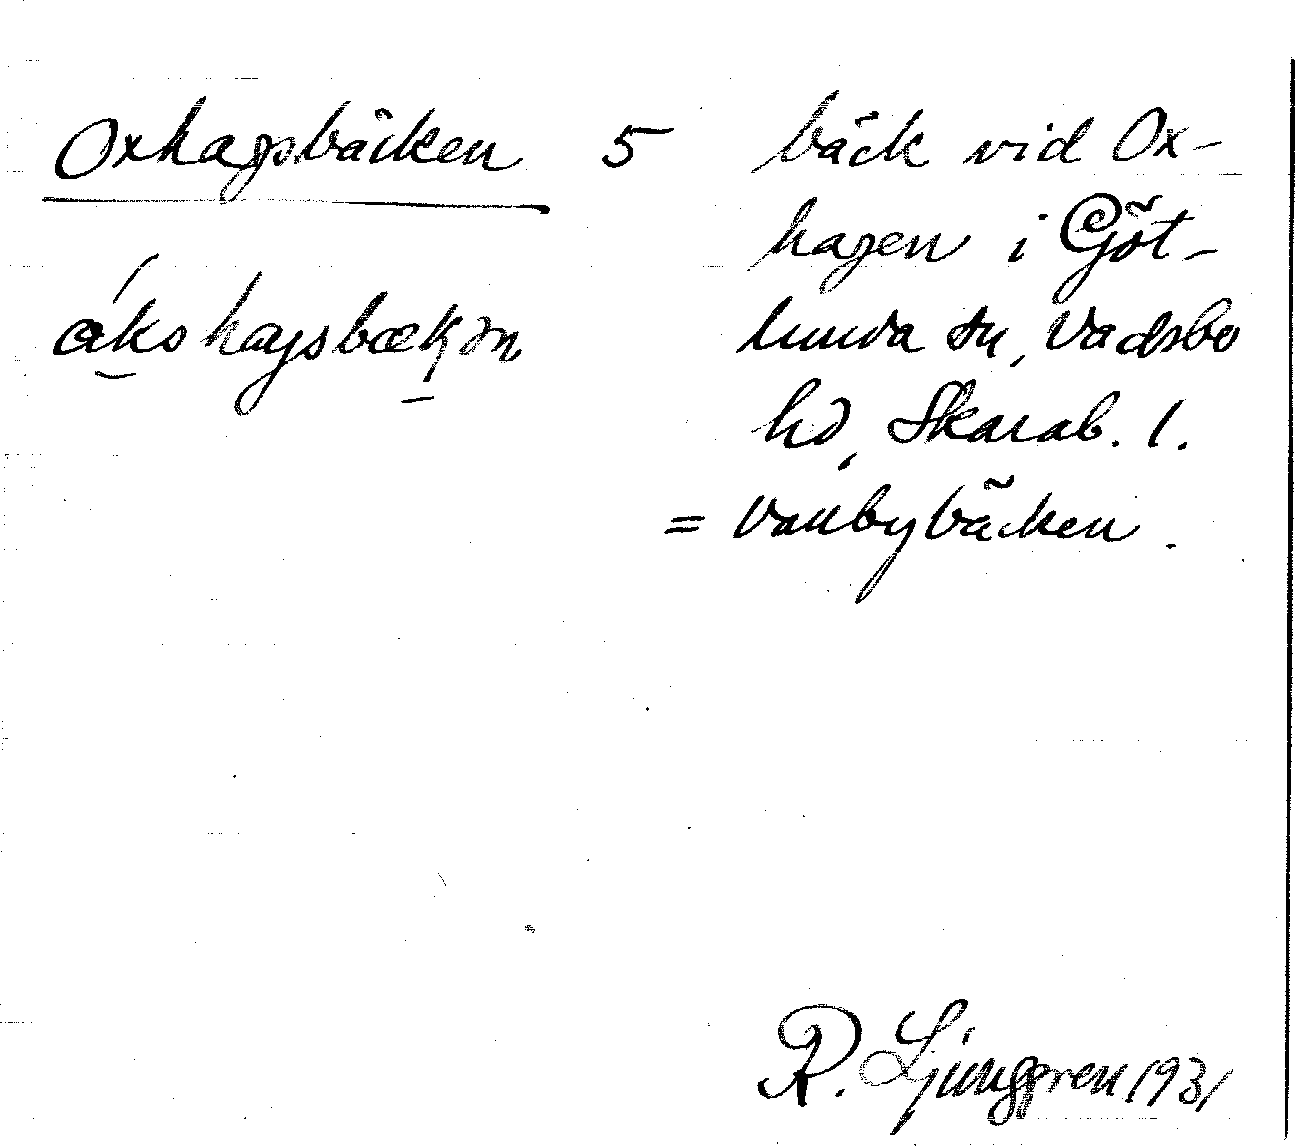 Oxhagsbäcken 5 bäck vid Ox-
hagen i Göt-
lunda sn, Vadsbo
hd, Skarab. l.
= Vallbybäcken.
R. Ljunggren 1931